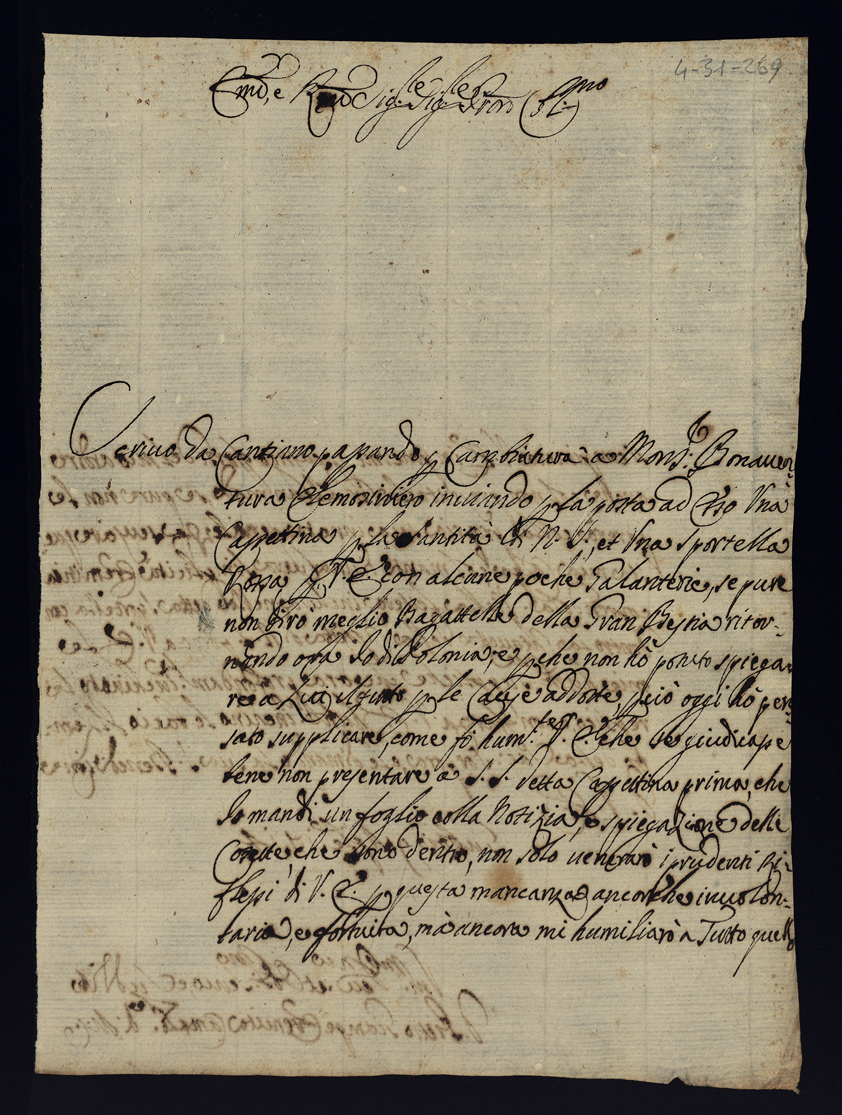 4-31-269
Em̃o, e R.mo Sig.re Sig.re Pron̄ Col.mo
Scrivo da Cantiano passando p Cambiatura à Mons.r Bonaven-
tura Elemosiniero inviando p la posta ad Esso Una
Cassettina p la Santità di N. S., et Una Sportella
Rossa p V. E. con alcune poche Galanterie, se pure
non dirò meglio Bagattelle della Gran Bestia ritor-
nando ora Io di Polonia, e pche non hò potuto spiega-
re a Lui il tutto p le Cause addotte, pciò oggi hò pen-
sato supplicare, come fò hum.te V. E. che se giudicasse
bene non presentare a S. S. detta Cassettina prima, che
Io mandi un foglio colla Notizia, e spiegazione delle
Cosette, che sono dentro, non solo venerarò i prudenti Ri-
flessi di V. E. p questa mancanza ancorche involon-
taria, e fortuita, mà ancora mi humiliarò a Tutto quello